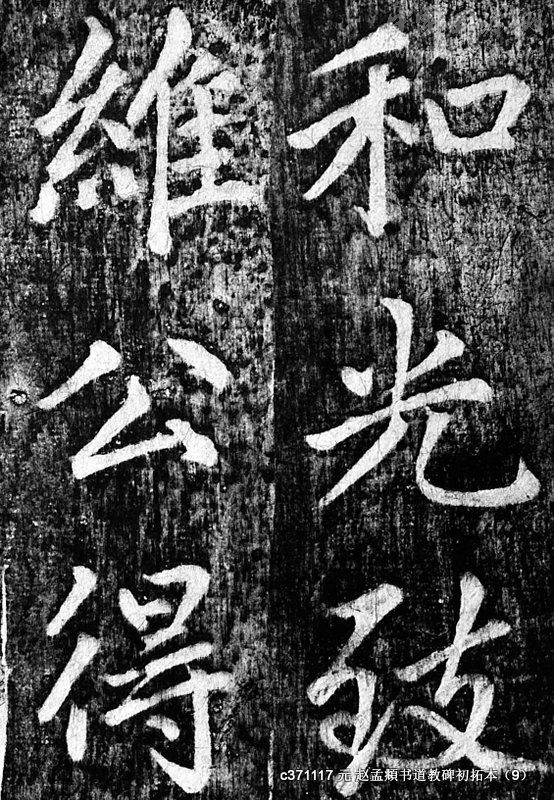 和光致
維公得
c371117 元 赵孟頫书道教碑初拓本（9）